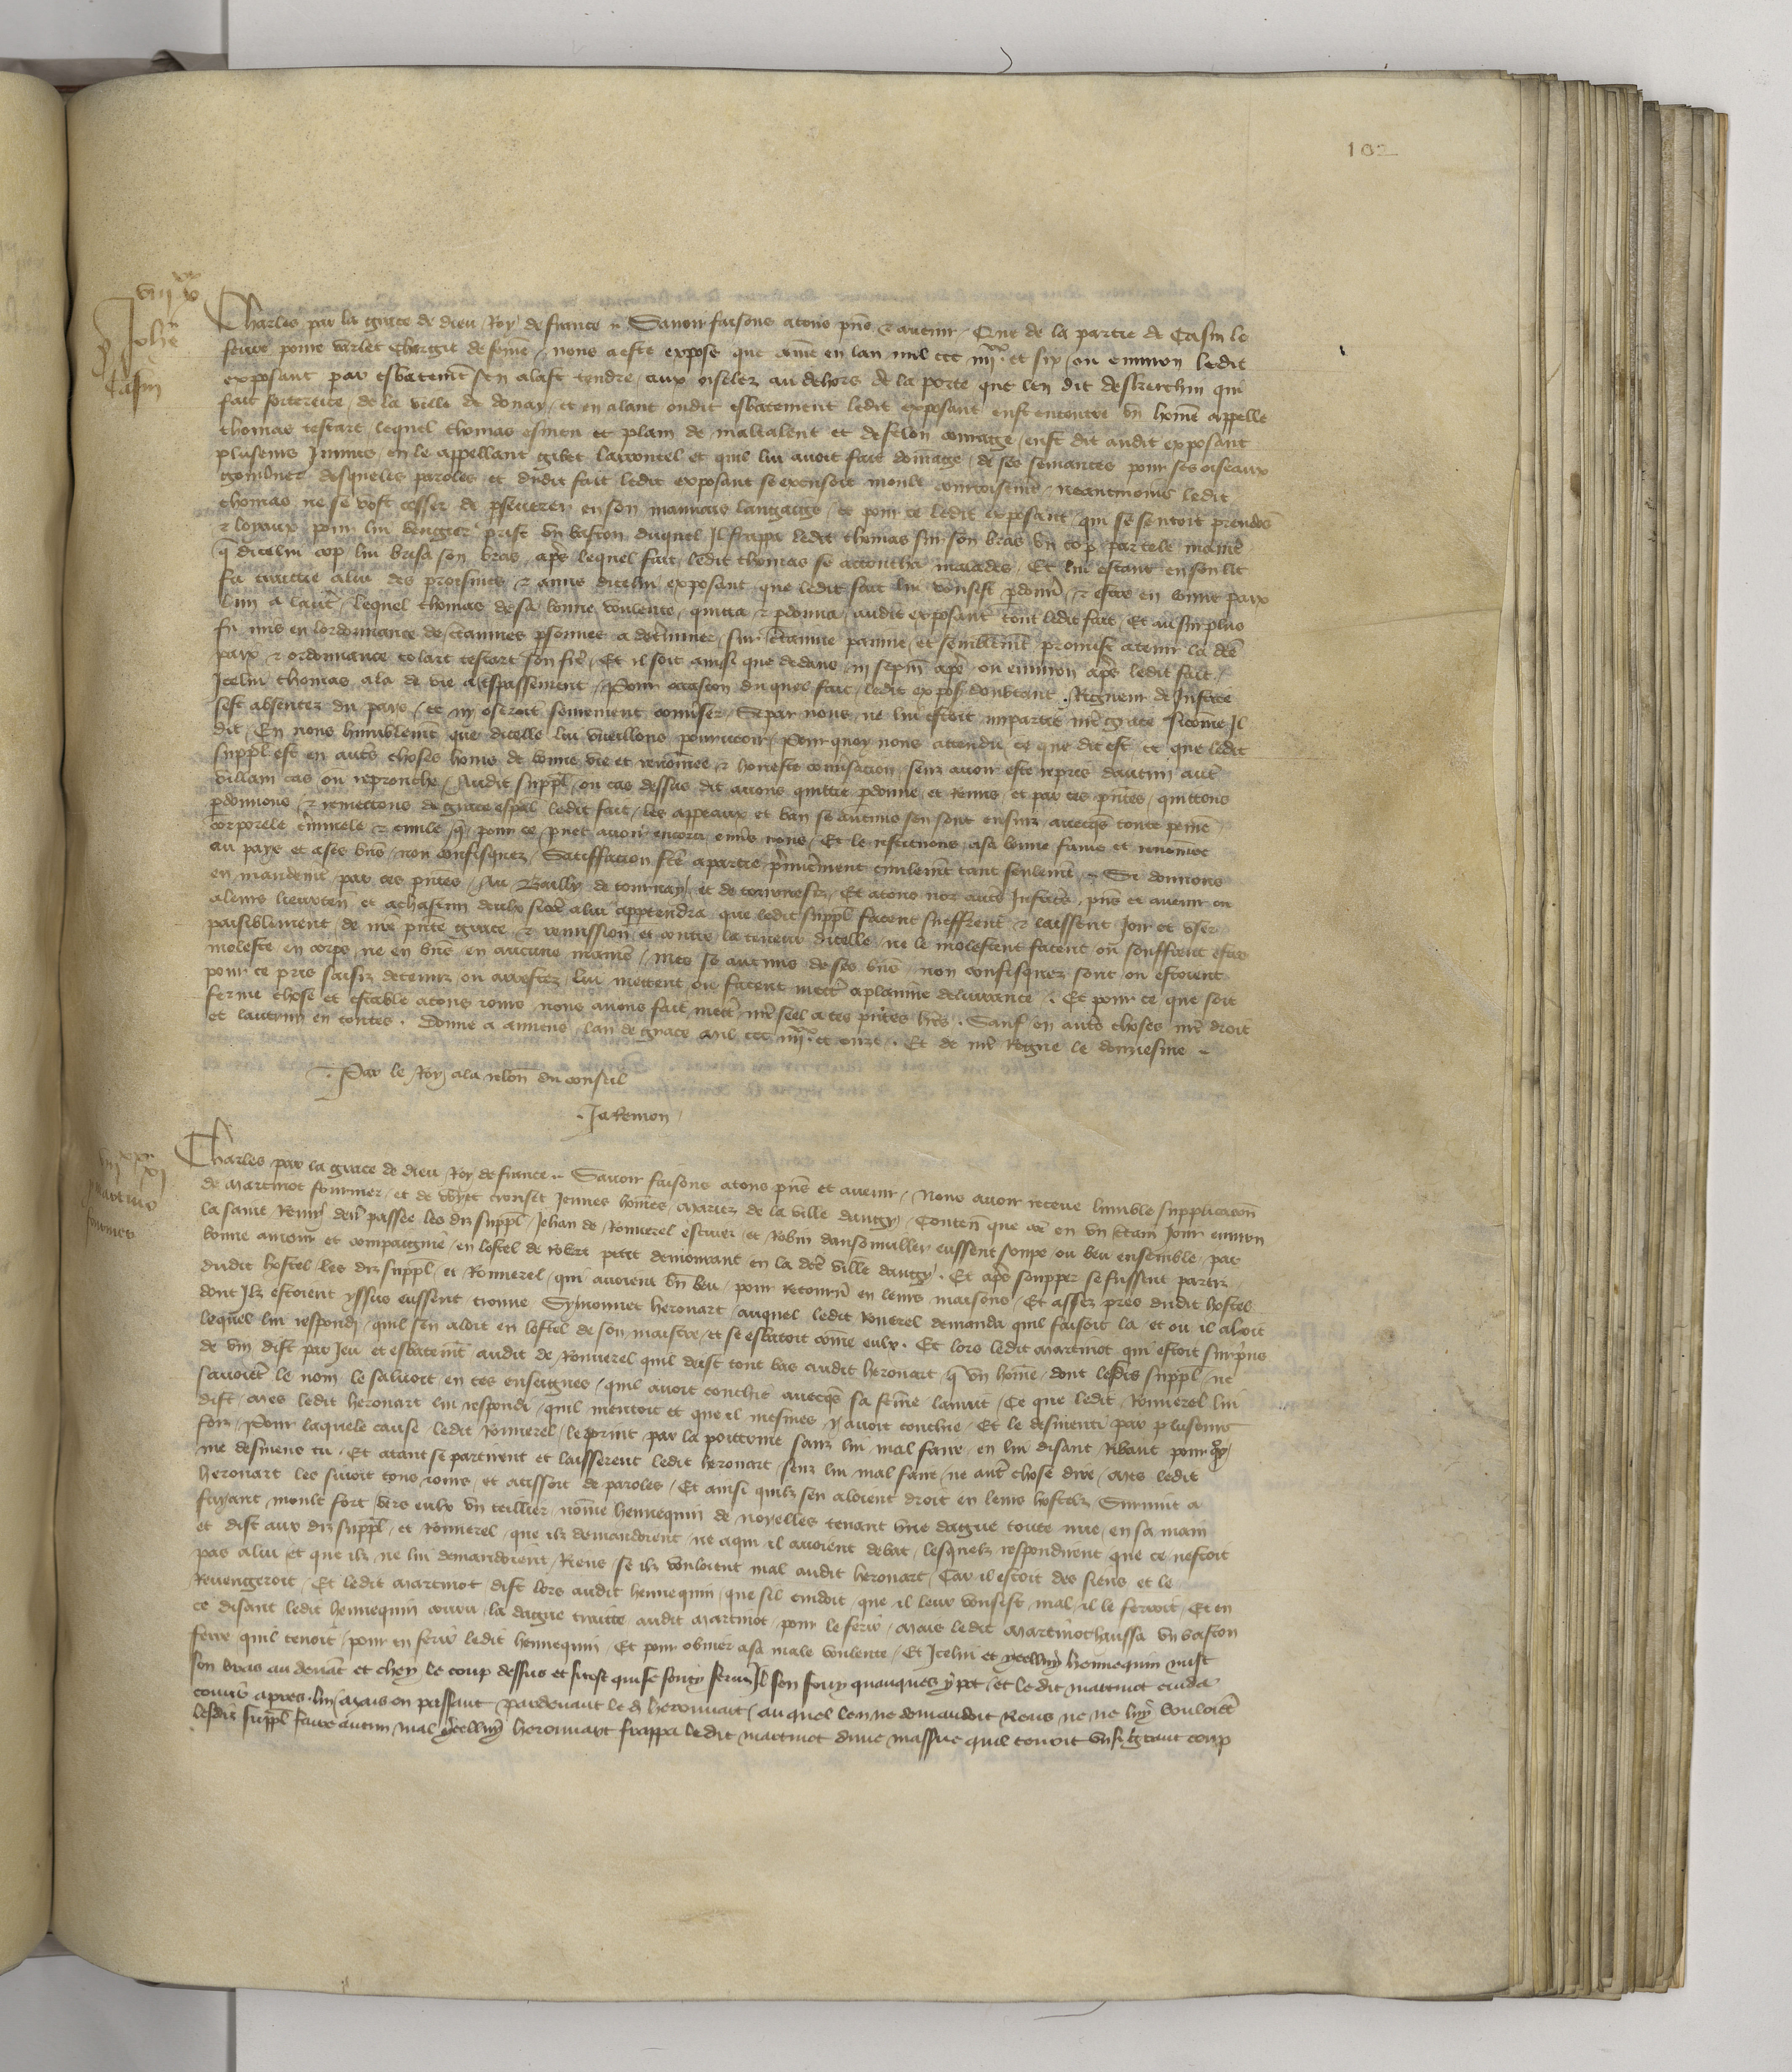 102
Charles par la grace de dieu Roy de france &c Savoir faisons a tous pns & avenir Que de la partie de Casin le
povre varlet chargie de feme nous a este expose que come en lan mil ccc iiiixx et six ou environ ledit
exposant par esbatemt sen alast tendre aux oiselez au dehors de la porte que len dit desquerchin qui
fait forterece de la ville de douay et en alant oudit esbatement ledit exposant eust encontre un home appelle
thomas testart lequel thomas esmeu et plain de maltalent et de felon courage eust dit audit exposant
plusieurs Iniures en le appellant gibet larroncel et quil lui avoit fait domage de ses semances pour ses oiseaux
desqueles paroles et dudit fait ledit exposant se excusoit moult courtoisemt neantmoins ledit
thomas ne se volt cesser de pseverer en son mauvais langaige et pour ce ledit exposant qui se sentoit preudoe
& loyaux pour lui vengier prist un baston duquel Il frappa ledit thomas sur son bras un cop par tele manie
q dicelui cop lui brisa son bras apres lequel fait ledit thomas se accoucha malades Et lui estant en son lit
fu traittie a lui des proismes & amis dicelui exposant que ledit fait lui voulsist pdoner & estre en bonne paix
lun a lautre lequel thomas de sa bonne voulente quitta & pdonna audit exposant tout ledit fait Et au surplus
fu mis en lordonnance de ctaines psonnes a determiner sur ctainne painne et semblemt promist a tenir la dce
paix & ordonnance colart testart son frere Et il soit ainsi que dedans un sepm apres ou environ apres ledit fait
Icelui thomas ala de vie a trespassement Pour occasion duquel fait ledit expost doubtant Rigueur de Justice
sest absentez du pays et ny oseroit seurement converser se par nous ne lui estoit impartie nre grace sicome Il
dit En nous humblemt que dicelle lui vueillons pourveoir Pour quoy nous attendu ce que dit est et que ledit
suppl est en autres choses home de bonne vie et renomee & honneste conversacion senz avoir este repris dautrui autre
villain cas ou reprouche Audit suppl ou cas dessus dit avons quittie pdonne et Remis et par ces pntes quittons
pdonnons & remettons de grace espal ledit fait les appeaux et ban se aucuns sen sont ensuiz avecqs toute peine
corporele criminele & civile q pour ce puet avoir encoru envers nous Et le restituons a sa bonne fame et renomee
au pays et a ses biens non confisquez Satisffacion fce a partie primierement civilemt tant seulemt &c Si donnons
en mandemt par ces pntes Au Bailly de tournay et de tournesiz Et a tous noz autres Justiciers pns et avenir ou
a leurs lieuxtens et a chascun deulx sicoe a lui apptendra que ledit suppl facent sueffrent & laissent Joir et user
paisiblement de nre pnte grace & remission et contre la teneur dicelle ne le molestent facent ou souffrent estre
moleste en corps ne en biens en aucune maniere Mes se aucuns de ses biens non confisquez sont ou estoient
pour ce pris saisiz detenuz ou arrestez lui mettent ou facent mettre a plainne delivrance Et pour ce que soit
ferme chose et estable a tous jours nous avons fait mettre nre seel a ces pntes lres Sauf en autres choses nre droit
et lautrui en toutes Donne a amiens lan de grace mil ccc iiiixx et onze Et de nre Regne le douziesme
Par le Roy a la relon du conseil
Ja Remon
Charles par la grace de dieu Roy de france &c Savoir faisons a tous pns et avenir Nous avoir receue humble supplicacon
de Martinot fournier et de crouset Jeunes homes Mariez de la ville dauchy Conten que coe en un ctain Jour environ
la saint Remy derr passee les diz suppl Jehan de Ronverel escuier et Robin eussent soupe ou beu ensemble par
bonne amour et compaignie en lostel de robert petit demourant en la dce ville dauchy Et apres soupper se fussent partiz
dudit hostel les diz suppl et Ronverel qui avoient bn beu pour retourner en leurs maisons Et assez pres dudit hostel
dont Ilz estoient yssus eussent trouve Symonnet herouart auquel ledit Ronverel demanda quil faisoit la et ou il aloit
lequel lui respondi quil sen aloit en lostel de son maistre et se esbatoit come eulx Et lors ledit Martinot qui estoit surpris
de vin dist par Jeu et esbatemt audit de Ronverel quil deist tout bas audit herouart q un home dont lesdis suppl ne
savoiet le nom le saluoit en ces enseignes quil avoit couchie avecqs sa feme lanuit Ce que ledit Ronverel lui
dist Mes ledit herouart lui respondi quil mentoit et que il mesmes y avoit couchie Et le desmenti par plusieurs
foiz Pour laquele cause ledit Ronverel le print par la poittrine sanz lui mal faire en lui disant Ribaut pour quoy
me desmens tu Et atant se partirent et laisserent ledit herouart senz lui mal faire ne autre chose dire Mes ledit
herouart les suioit tous jours et attissoit de paroles Et ainsi quilz sen aloient droit en leurs hostelz Survint a
fuyant moult fort vers eulx un teillier nome hennequin de noyelles tenant une dague toute nue en sa main
et dist aux diz suppl et Ronverel que ilz demandoient ne a qui il avoient debat lesquelz respondirent que ce nestoit
pas a lui et que ilz ne lui demandoient Riens se ilz vouloient mal audit herouart Car il estoit des siens et le
Revengeroit Et ledit Martinot dist lors audit hennequin que sil cuidoit que il leur voulsist mal il le ferroit Et en
ce disant ledit hennequin couru la dague traitte audit Martinot pour le ferir Mais ledit Martinot haussa un baston
ferre quil tenoit pour en ferir ledit hennequin Et pour obvier a sa male voulente Et Icelui et ycelluy hennequin mist
son bras au devat et chey le coup dessus et sitost quil se senty feru Il sen fouy quanques y pot et ledit martinot cuida
courir apres lui Mais en passant pardevant le d herouuart auquel len ne demandoit Riens ne ne luy vouloiet
lesdiz suppl faire aucun mal ycelluy herouuart frappa ledit martinot dune massue quil tenoit un si grant coup